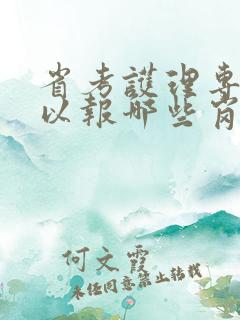 省考護理專
以報哪些崗
何文霞
未经同意禁止转载